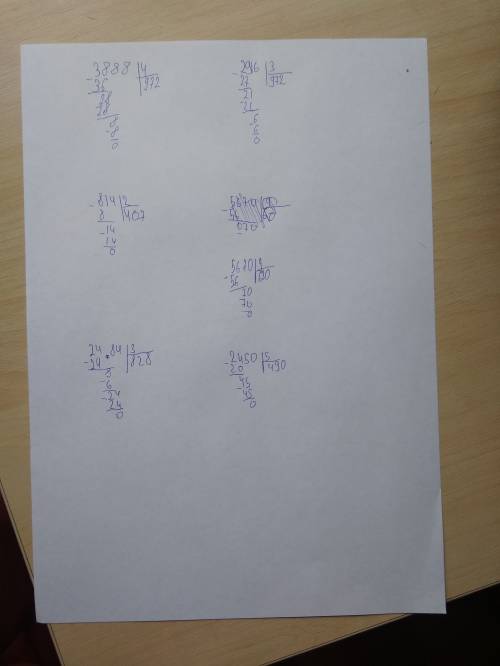 3888 4
- 36 972
28
28
8
- 8
0
2916 3
- 27 972
21
- 21
6
- 6
0
814 2
- 8 407
14
- 14
0
- 56
070
5680
- 56
0
2484 3
- 24 828
8
- 6
24
- 24
0
2450 5
- 20 490
45
- 45
0